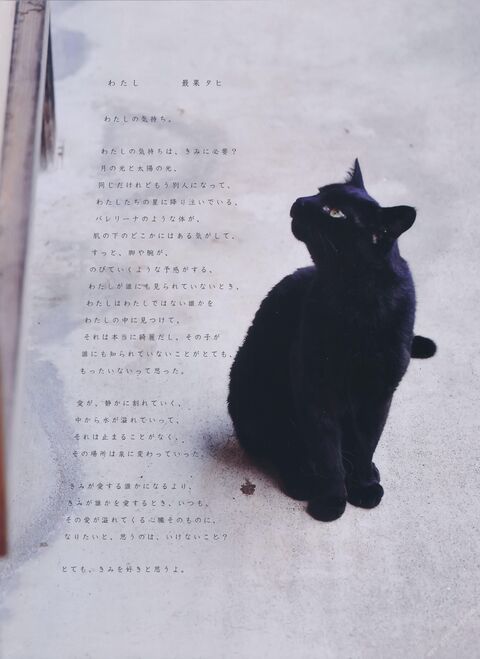 わたし　最果タヒ
わたしの気持ち。
わたしの気持ちは、きみに必要？
月の光と太陽の光、
同じだけれどもう別人になって、
わたしたちの星に降り注いでいる、
バレリーナのような体が、
肌の下のどこかにはある気がして、
すっと、脚や腕が、
のびていくような予感がする、
わたしが誰にも見られていないとき、
わたしはわたしではない誰かを
わたしの中に見つけて、
それは本当に綺麗だし、その子が
誰にも知られていないことがとても、
もったいないって思った。
愛が、静かに割れていく、
中から水が溢れていって、
それは止まることがなく、
その場所は泉に変わっていった。
きみが愛する誰かになるより、
きみが誰かを愛するとき、いつも、
その愛が溢れてくる心臓そのものに、
なりたいと、思うのは、いけないこと？
とても、きみを好きと思うよ。